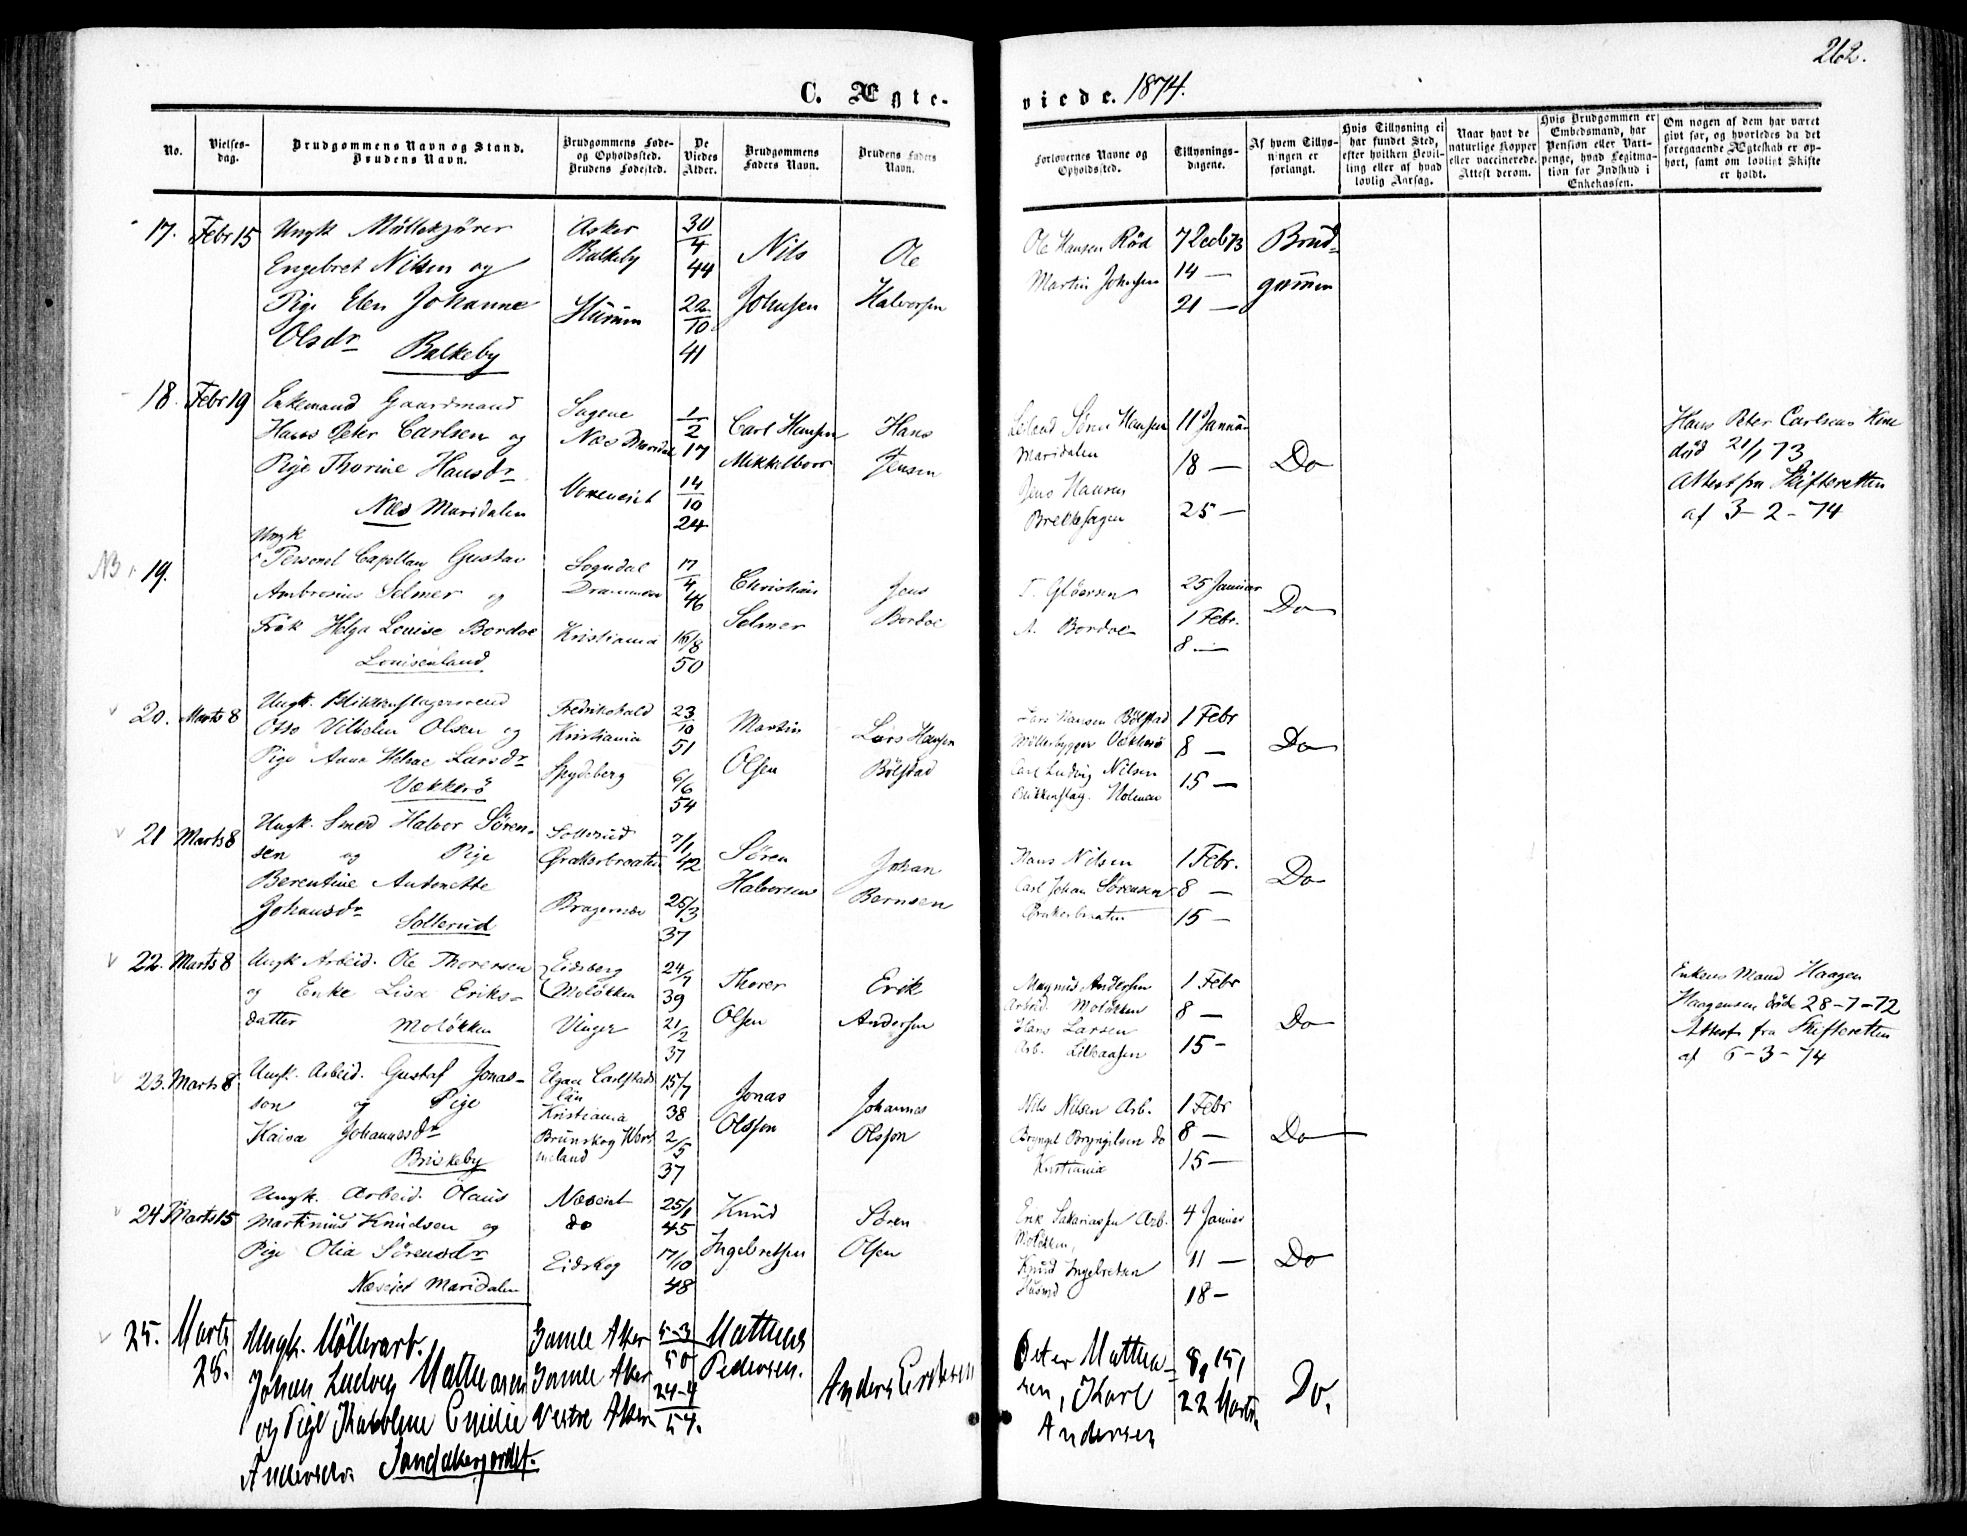 262.
C. Ægte-
viede. 1874.
No.
Vielses-
dag.
Brudgommens Navn og Stand.
Brudens Navn.
Brudgommens Føde-
og Opholdssted.
Brudens Fødested.
De
Viedes
Alder.
Brudgommens
Faders Navn.
Brudens Faders
Navn.
Forlovernes Navne og
Opholdssted.
Tillysnings-
dagene.
Af hvem Tillys-
ningen er
forlangt.
Hvis Tillysning ei
har fundet Sted,
efter hvilken Bevil-
ling eller af hvad
lovlig Aarsag.
Naar havt de
naturlige Kopper
eller vaccinerede.
Attest derom.
Hvis Brudgommen er
Embedsmand, har
Pension eller Vart-
penge, hvad Legitma-
tion for Indskud i
Enkekassen.
Om nogen af dem har været
givt før, og hvorledes da det
foregaaende Ægteskab er op-
hørt, samt om lovligt Skifte
er holdt.
17. Febr 15
Ungk Müllekjører
Engebret Nilsen og
Pige Elen Johanne
Olsdr Balkeby
Asker
Balkeby
Hurum
30/4 44
22/10 41
Nils
Johnsen
Ole
Halvorsen
Ole Hansen Rød
Martin Johnsen
7 Decb 73
14 —
21 —
Brud-
gommen
18. Febr 19
Enkemand Gaardmand
Hans Peter Carlsen og
Pige Thorine Hansdr
Næs Maridalen
Sagene
Næs Maridal
1/2 17
14/10 24
Carl Hansen
Mikkelborr
Hans
Jensen
Søren Hansen
Maridalen
Jens Hansen
Brekkesagen
11 Januar
18 —
25 —
Do
Hans Peter Carlsens Kone
död 21/1 73
Attest fra Skifteretten
af 3-2-74
NB 19.
Ungk
Personel Capellan Gustav
Ambrosius Selmer og
Frøk Helga Louise Bordoe
Louisenland
Sogndal
Drammen
Kristiania
17/4 46
16/8 50
Christian
Selmer
Jens
Bordoe
T. Gløersen
A. Bordoe
25 Januar
1 Febr.
8 —
Do
20. Marts 8
Ungk. Blikkenslagersvend
Otto Vilhelm Olsen og
Pige Anna Helene Larsdr
Vækkerö
Fredrikshald
Kristiania
Spydeberg
23/10 51
6/6 54
Martin
Olsen
Lars Hansen
Bölstad
Lars Hansen Bölstad
Möllebygger Vækkerö
Carl Ludvig Nilsen
Blikkenslag. Holmen
1 Febr
8 —
15 —
Do
21 Marts 8
Ungk. Smed Halvor Sören-
sen og Pige
Berentine Antonette
Johansdr Sollerud
Sollerud
Ørakerbraaten
Bragernæs
7/1 42
25/3 37
Sören
Halvorsen
Johan
Bernsen
Hans Nilsen
Carl Johan Sörensen
Ørakerbraaten
1 Febr.
8 —
15 —
Do
22. Marts 8
Ungk Arbeid. Ole Thoresen
og Enke Lisa Eriks-
datter Molökken
Eidsberg
Molökken
Vinger
24/7 39
21/2 37
Thorer
Olsen
Erik
Andersen
Magnus Andersen
Arbeid. Molökken
Hans Larsen
Arb. Lilleaasen
1 Febr
8 —
15 —
Do
Enkens Mand Haagen
Haagensen död 28-7-72
Attest fra Skifteretten
af 6-3-74
23. Marts 8
Ungk. Arbeid. Gustaf Jonas-
son og Pige
Kaisa Johannesdr
Briskeby
Elgaa Carlstads
län
Kristiania
Brunskog Wer-
meland
15/7 38
2/5 37
Jonas
Olsson
Johannes
Olsson
Nils Nilsen Arb.
Bryngel Bryngelsen do
Kristiania
1 Febr
8 —
15 —
Do
24 Marts 15
Ungk. Arbeid. Olaus
Martinius Knudsen og
Pige Olia Sörensdr
Næseiet Maridalen
Næseiet
do
Eidskog
25/1 45
17/10 48
Knud
Ingebretsen
Sören
Olsen
Erik Sakariassen Arb.
Molökken,
Knud Ingebretsen
Husmd
4 Januar
11 —
18 —
Do
25. Marts
28.
Ungk. Möllerarb.
Johan Ludvig Mathiasen
og Pige Karoline Emilie
Andersdr. Sandakerjordet.
Gamle Aker
Gamle Aker
Vestre Aker
5-3 50
24-4 54.
Mathias
Pedersen.
Anders Eriksen
Peter Mathia-
sen, Karl
Andersen
8, 15,
22 Marts
Do.